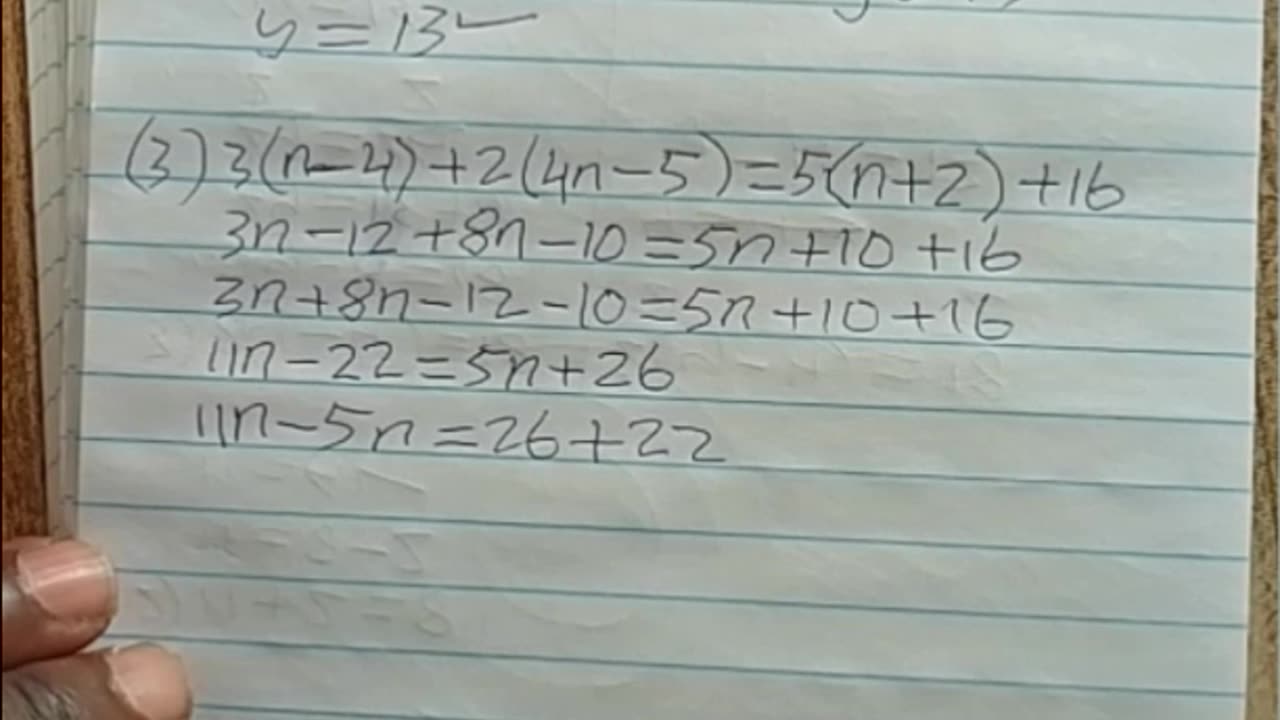 y = 13
(3) 3(n-4)+2(4n-5)=5(n+2)+16
3n-12+8n-10=5n+10+16
3n+8n-12-10=5n+10+16
11n-22=5n+26
11n-5n=26+22